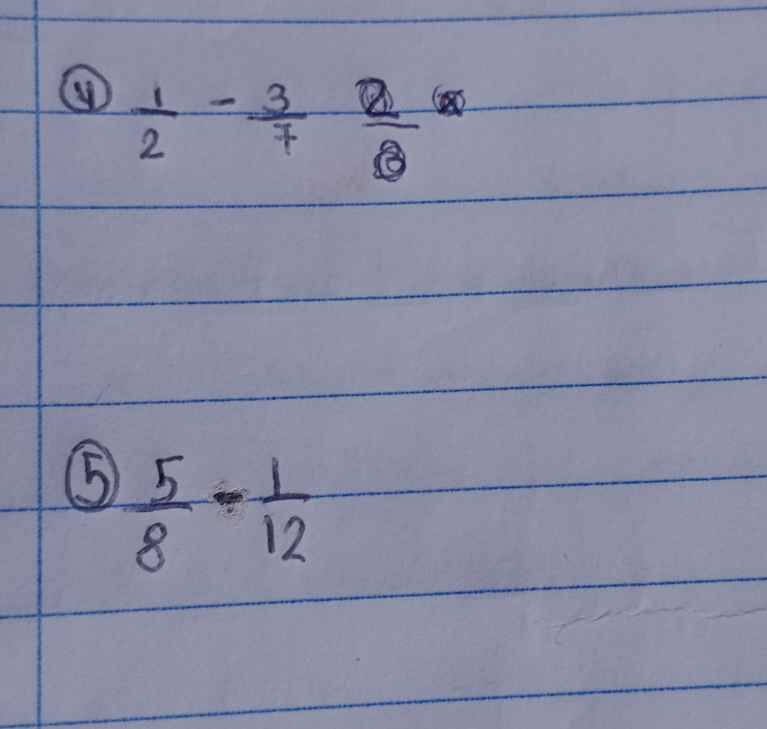 ④ 1/2 - 3/7
⑤ 5/8 - 1/12